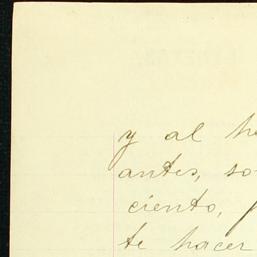 y al
antes, so
ciento,
te hacer